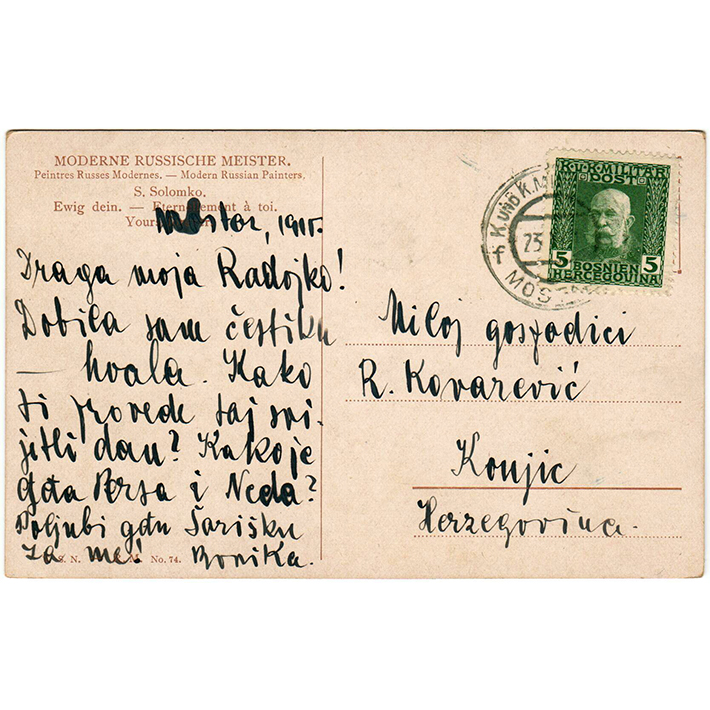 MODERNE RUSSISCHE MEISTER.
Peintres Russes Modernes. — Modern Russian Painters.
S. Solomko.
Ewig dein. — Eternellement à toi.
Your
Mostar, 1915.
Draga moja Radojko!
Dobila sam čestitku
— hvala. Kako
ti provede taj svi-
jetli dan? Kako je
gđa Persa i Neda?
Poljubi gđu Šarišku
za me! Borika.
S. N. No. 74.
K. u. K. MILITÄR
POST
5 BOSNIEN 5
HERCEGOVINA
K. UND K. M
23
MOS
Miloj gospođici
R. Kovarević
Konjic
Herzegovina.